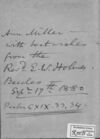 Ann Miller
with best wishes
from the
Rev. F. E. W. Holmes
Beccles
Sept. 17th 1880
Psalm CXIX 33, 34.